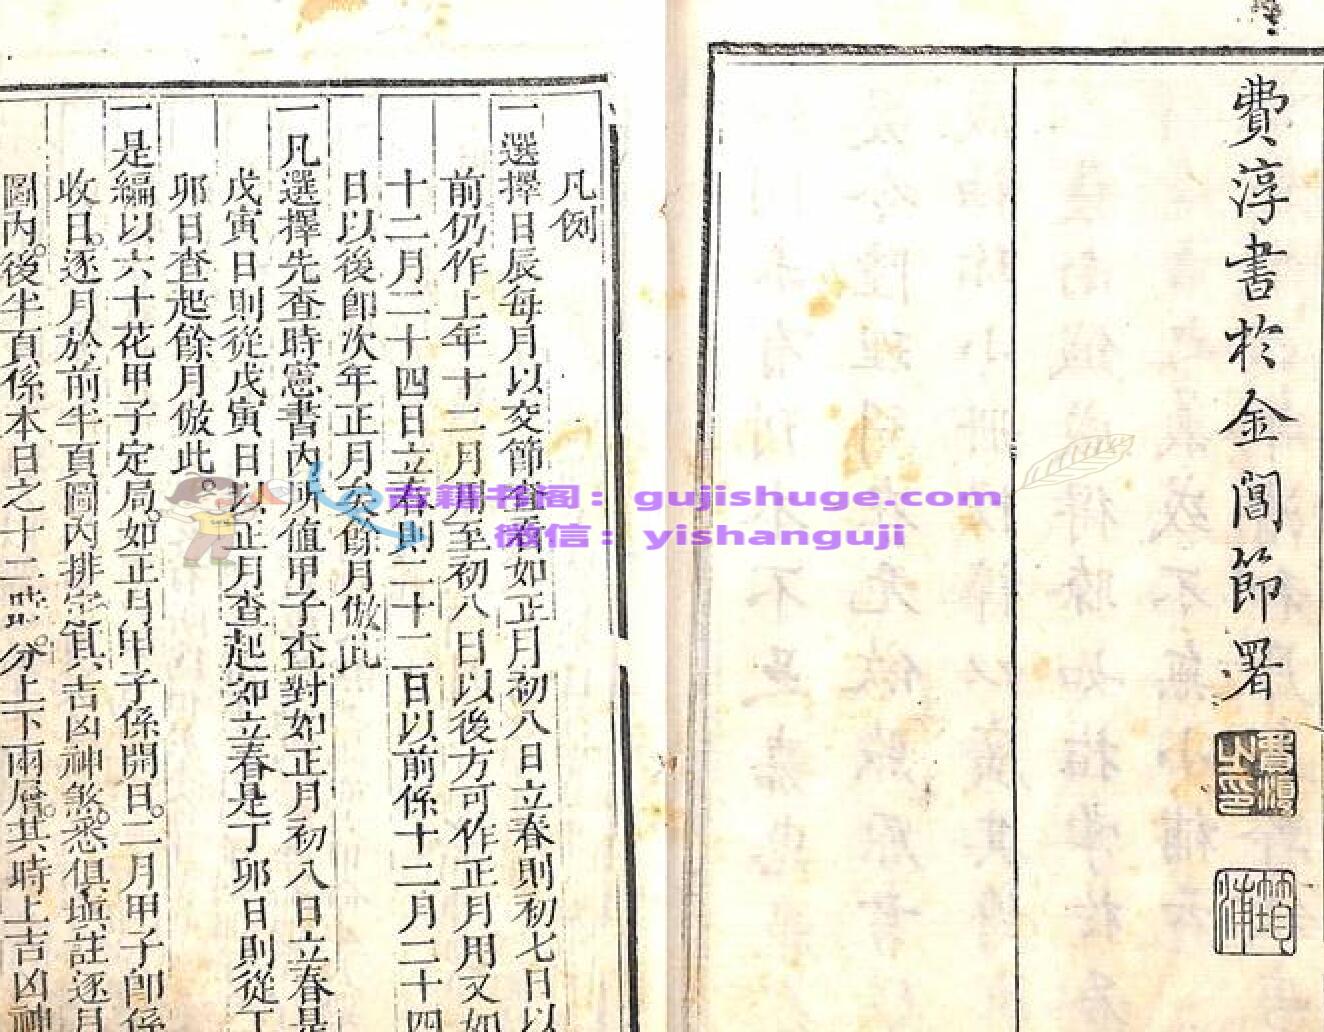 費淳書於金閶節署
凡例
一選擇日辰每月以交節查看如正月初八日立春則初七日以
前仍作上年十二月用至初八日以後方可作正月用又如
十二月二十四日立春則二十二日以前係十二月二十四
日以後即次年正月矣餘月倣此
一凡選擇先查時憲書內所值甲子查對如正月初八日立春是
戊寅日則從戊寅日以正月查起如立春是丁卯日則從丁
卯日查起餘月倣此
一是編以六十花甲子定局如正月甲子係開日二月甲子即係
收日逐月於前半頁圖內排定其吉凶神煞悉俱填註逐月
圖內後半頁係本日之十二時分上下兩層其時上吉凶神
古籍书阁：gujishuge.com
微信：yishanguji